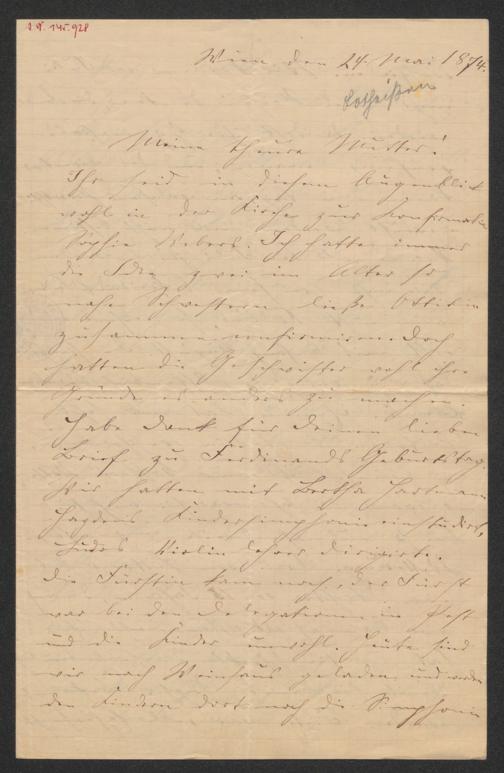 I.N. 145.928
Wien, den 24. Mai 1874.
Lotheißen
Meine theure Mutter!
Ihr seid in diesem Augenblick
wohl in der Kirche zur Konfirmation
Sophie Webers. Ich hatte immer
die Idee zwei im Alter so
nahe Schwestern ließe Ottilie
zusammen confirmiren. Doch
hatten die Geschwister wohl ihre
Gründe es anders zu machen.
Habe Dank für Deinen lieben
Brief zu Ferdinands Geburtstag.
Wir hatten mit Bertha Hartmann
Haydns Kindersimphonie einstudirt,
Violin Lehrer dirigirte.
Die Fürstin kam noch, der Fürst
war bei den Delegationen in Pest
und die Kinder unwohl. Heute sind
wir nach Weinhaus geladen und werden
den Kindern dort noch die Simphonie